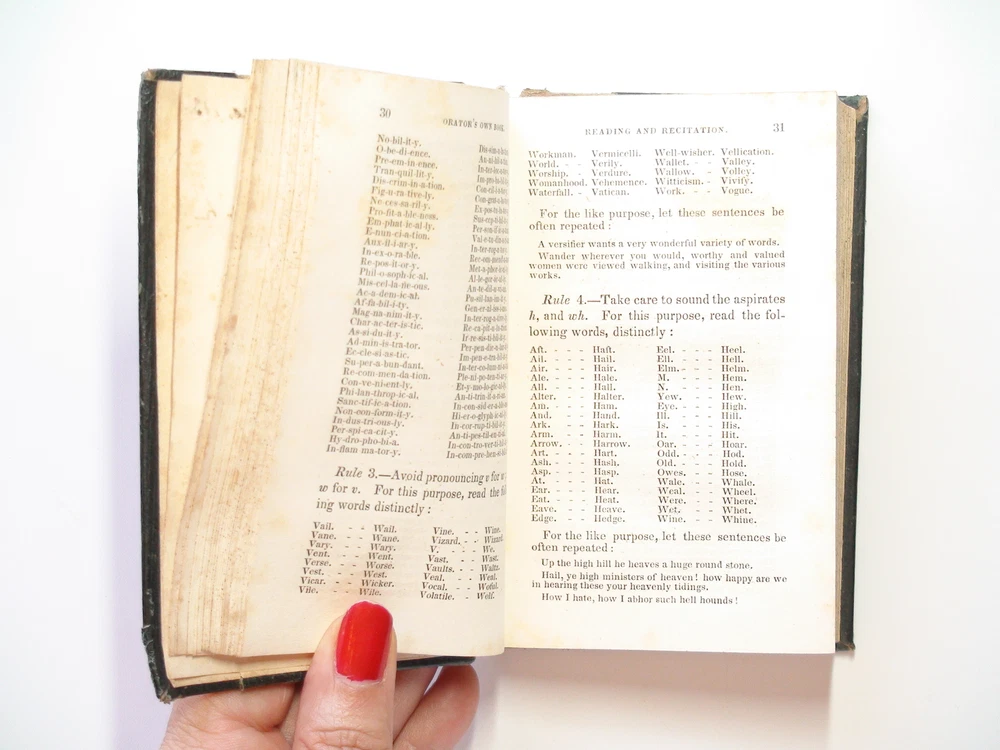 30
ORATOR'S OWN BOOK.
No-bil-it-y.
O-be-di-ence.
Pre-em-in-ence.
Tran-quil-lit-y.
Dis-crim-in-a-tion.
Fig-u-ra-tive-ly.
Ne-ces-sa-ril-y.
Pro-fit-a-ble-ness.
Em-phat-ic-al-ly.
E-nun-ci-a-tion.
Aux-il-i-ar-y.
In-ex-o-ra-ble.
Re-pos-it-or-y.
Phil-o-soph-ic-al.
Mis-cel-la-ne-ous.
Ac-a-dem-ic-al.
Af-fa-bil-i-ty.
Mag-na-nim-it-y.
Char-ac-ter-is-tic.
As-si-du-it-y.
Ad-min-is-tra-tor.
Ec-cle-si-as-tic.
Su-per-a-bun-dant.
Re-com-men-da-tion.
Con-ve-ni-ent-ly.
Phi-lan-throp-ic-al.
Sanc-tif-ic-a-tion.
Non-con-form-it-y.
In-dus-tri-ous-ly.
Per-spi-ca-cit-y.
Hy-dro-pho-bi-a.
In-flam ma-tor-y.
Rule 3.—Avoid pronouncing v for
w for v. For this purpose, read the
ing words distinctly :
Vail. - - Wail. Vine. - - Wine.
Vane. - - Wane. Vizard. - - Wizard.
Vary. - - Wary. V. - - We.
Vent. - - Went. Vast. - - Wast.
Verse. - - Worse. Vaults. - - Waltz.
Vest. - - West. Veal. - - Weal.
Vicar. - - Wicker. Vocal. - - Woful.
Vile. - - Wile. Volatile. - - Wolf.
READING AND RECITATION. 31
Workman. Vermicelli. Well-wisher. Vellication.
World. - - Verily. Wallet. - - Valley.
Worship. - - Verdure. Wallow. - - Volley.
Womanhood. Vehemence. Witticism. - Vivify.
Waterfall. - Vatican. Work. - - Vogue.
For the like purpose, let these sentences be
often repeated :
A versifier wants a very wonderful variety of words.
Wander wherever you would, worthy and valued
women were viewed walking, and visiting the various
works.
Rule 4.—Take care to sound the aspirates
h, and wh. For this purpose, read the fol-
lowing words, distinctly :
Aft. - - - Haft. Eel. - - - Heel.
Ail. - - - Hail. Ell. - - - Hell.
Air. - - - Hair. Elm. - - - Helm.
Ale. - - - Hale. M. - - - Hem.
All. - - - Hall. N. - - - Hen.
Alter. - - - Halter. Yew. - - - Hew.
Am. - - - Ham. Eye. - - - High.
And. - - - Hand. Ill. - - - Hill.
Ark. - - - Hark. Is. - - - His.
Arm. - - - Harm. It. - - - Hit.
Arrow. - - Harrow. Oar. - - - Hoar.
Art. - - - Hart. Odd. - - - Hod.
Ash. - - - Hash. Old. - - - Hold.
Asp. - - - Hasp. Owes. - - - Hose.
At. - - - Hat. Wale. - - - Whale.
Ear. - - - Hear. Weal. - - - Wheel.
Eat. - - - Heat. Were. - - - Where.
Eave. - - - Heave. Wet. - - - Whet.
Edge. - - - Hedge. Wine. - - - Whine.
For the like purpose, let these sentences be
often repeated :
Up the high hill he heaves a huge round stone.
Hail, ye high ministers of heaven! how happy are we
in hearing these your heavenly tidings.
How I hate, how I abhor such hell hounds!